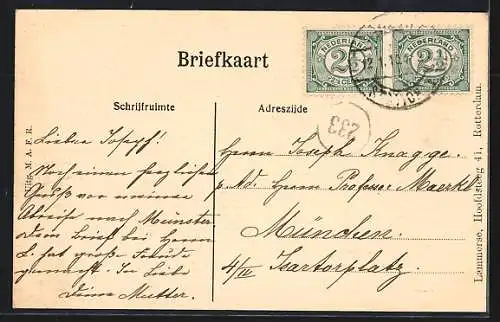 Briefkaart
Schrijfruimte
Adreszijde
NEDERLAND
2½
2½ CENT
NEDERLAND
2½
233
Lieber Joseph!
Noch einen herzlichen
Gruß vor meiner
Abreise nach Münster
Dein Brief bei Herrn
L. hat große Freude
gemacht. In Liebe
Deine Mutter.
Herrn Joseph Knagge.
p. Ad. Herrn Professor Maerkl
München.
4/II Isartorplatz.
Uitg. M. A. F. R.
Lammerse, Hoofdsteeg 41, Rotterdam.